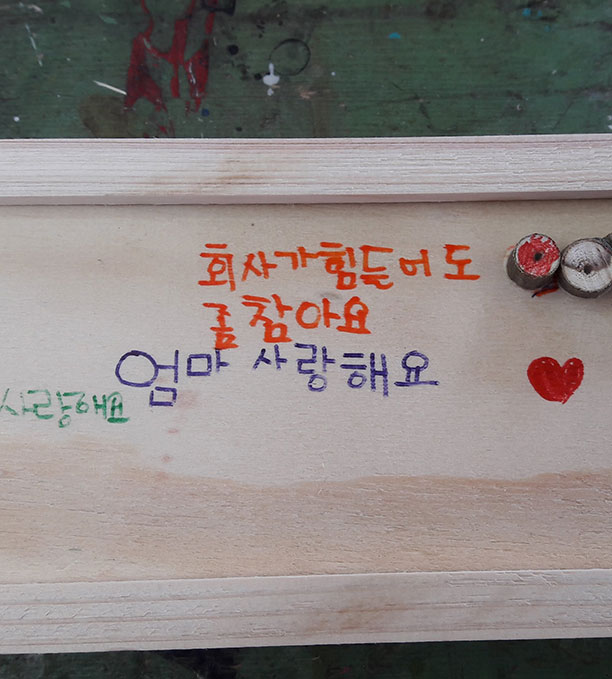 회사가힘들어도
좀참아요
엄마 사랑해요